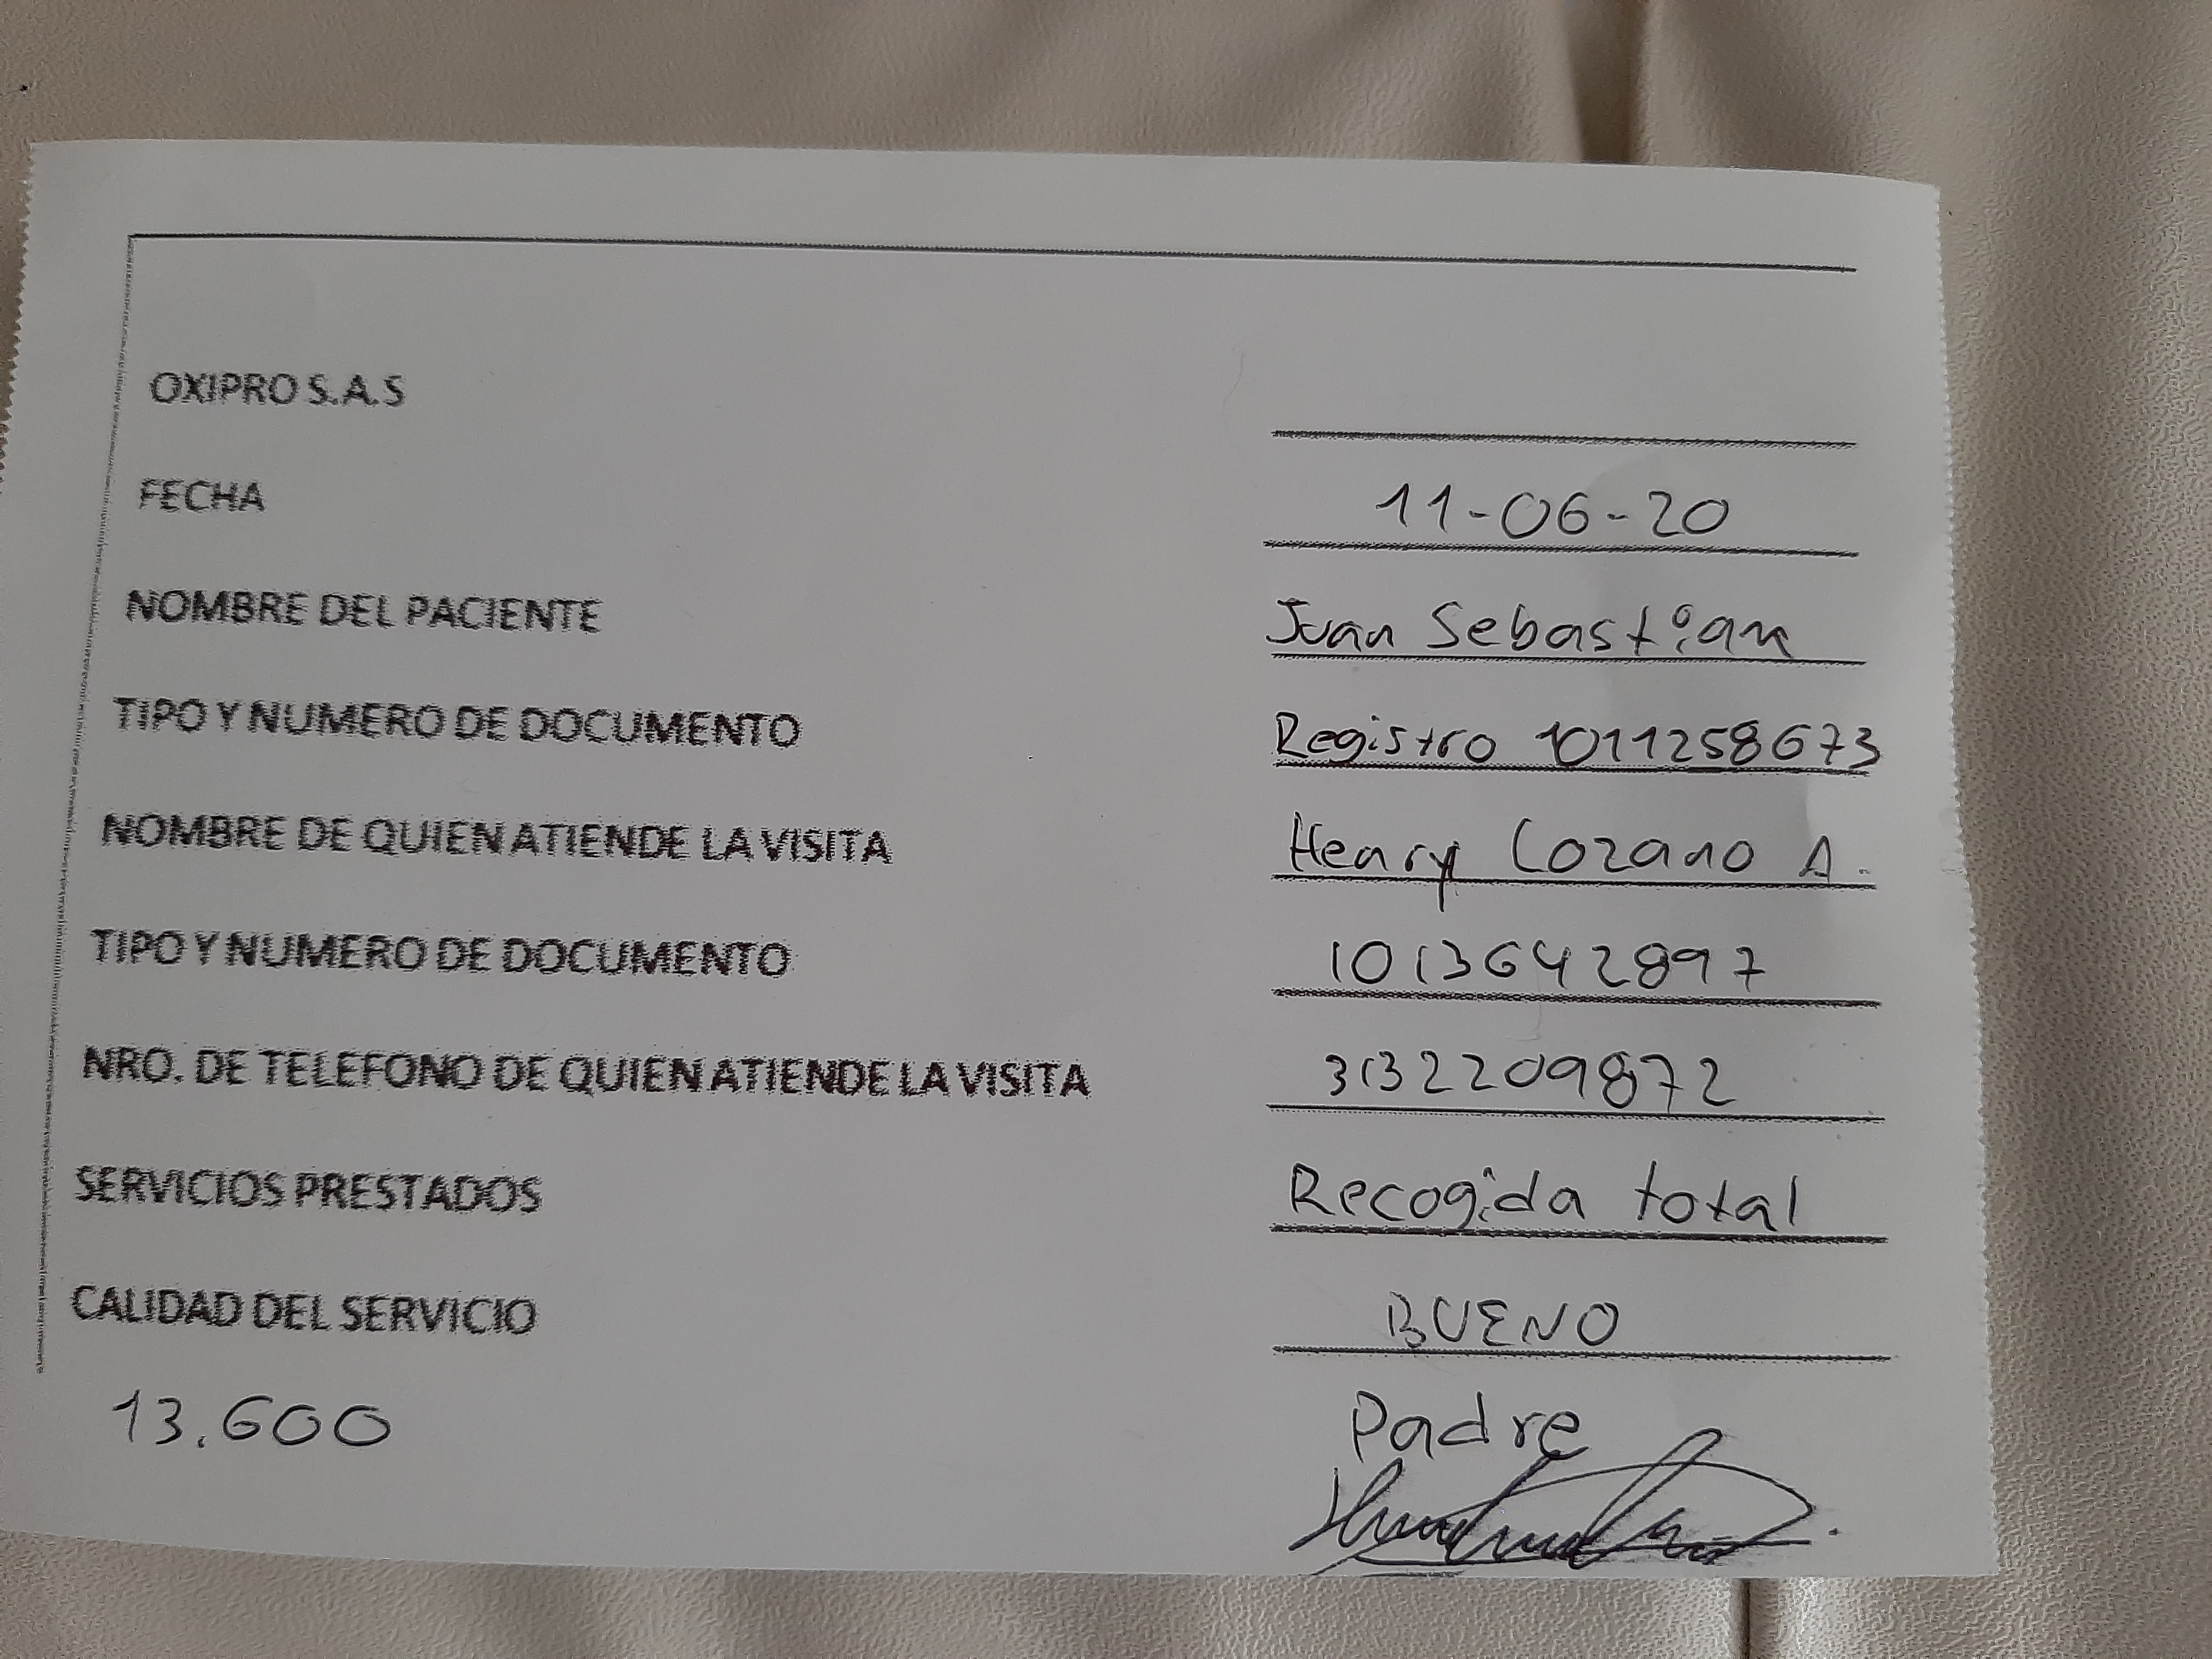 OXIPRO S.A.S
FECHA 11-06-20
NOMBRE DEL PACIENTE Juan Sebastian
TIPO Y NUMERO DE DOCUMENTO Registro 1011258673
NOMBRE DE QUIEN ATIENDE LA VISITA Henry Lozano A.
TIPO Y NUMERO DE DOCUMENTO 1013642897
NRO. DE TELEFONO DE QUIEN ATIENDE LA VISITA 3132209872
SERVICIOS PRESTADOS Recogida total
CALIDAD DEL SERVICIO BUENO
13.600 Padre